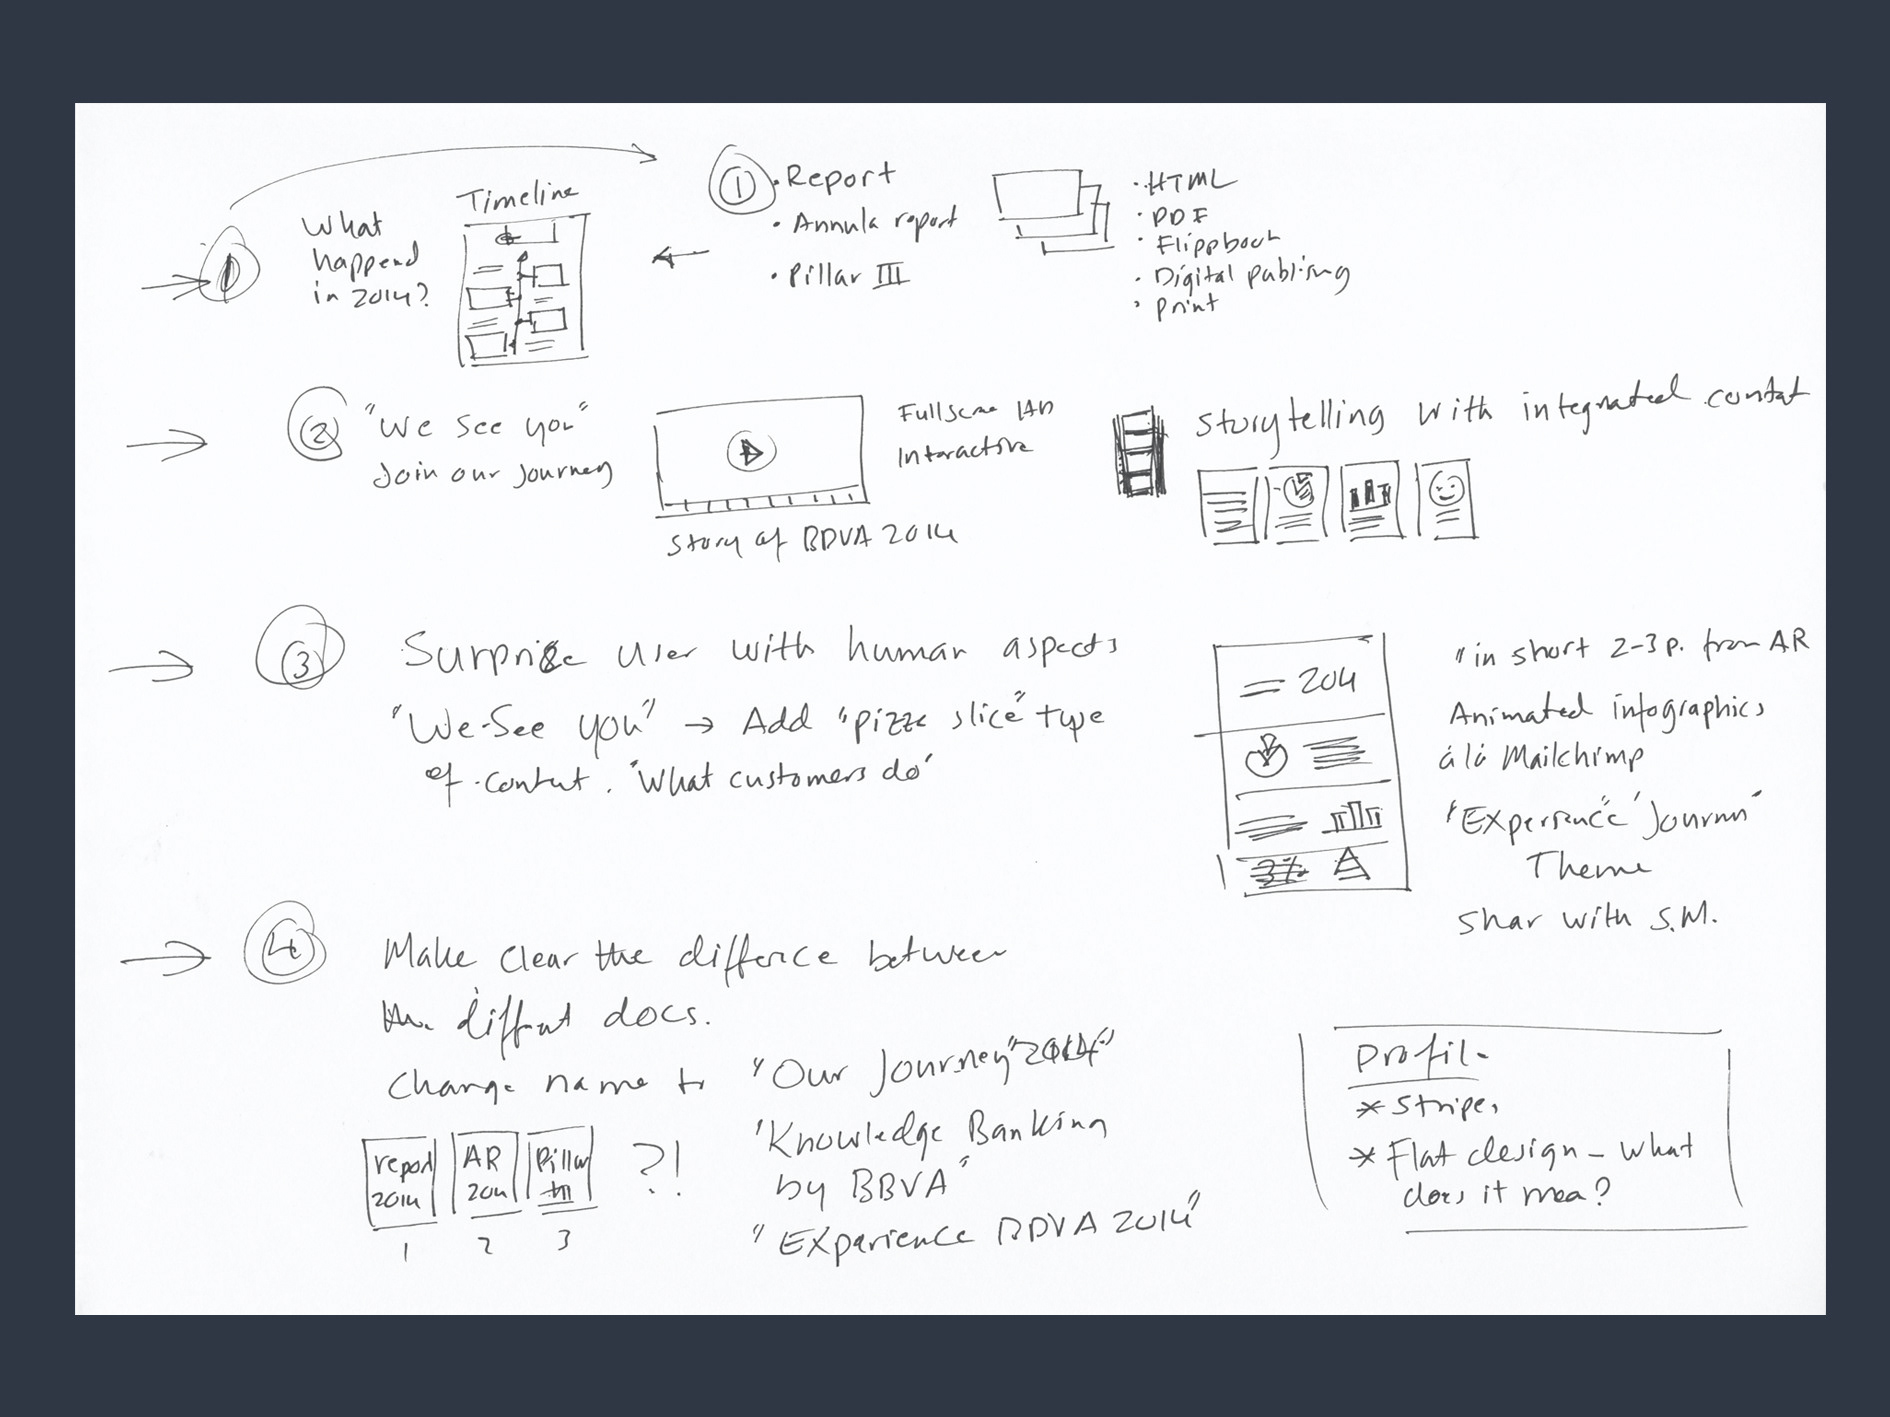 1
What
happend
in 2014?
Timeline
1
• Report
• Annula report
• Pillar III
• HTML
• PDF
• Flippbook
• Digital publising
• print
2
"We see you"
Join our journey
Fullscree
Interactive
Story of BBVA 2014
Storytelling with integrated contet
3
Surprise user with human aspects
"We-See you" → Add "pizze slice" type
of content. "What customers do"
2014
"in short 2-3 p. from AR
Animated infographics
á lá Mailchimp
"Experience" "Journy"
Theme
Shar with S.M.
4
Make clear the differce between
the diffrent docs.
Change name to
"Our Journey" 2014"
"Knowledge Banking
by BBVA"
"Experience BBVA 2014"
report
2014
AR
2014
Pillar
III
?!
1
2
3
Profile
* Stripes
* Flat design - what
does it mea?